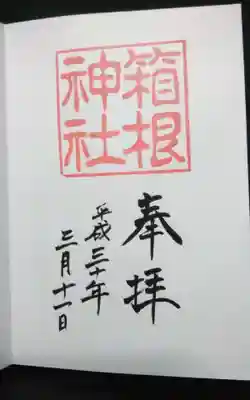 箱根
神社
奉拝
平成三十年
三月十一日